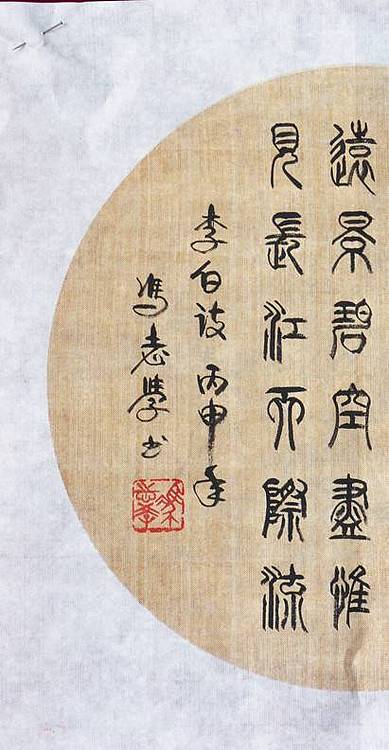 遠景碧空盡惟
見長江天際流
李白诗 丙申年
馮志學书